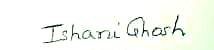 Ishani Ghosh